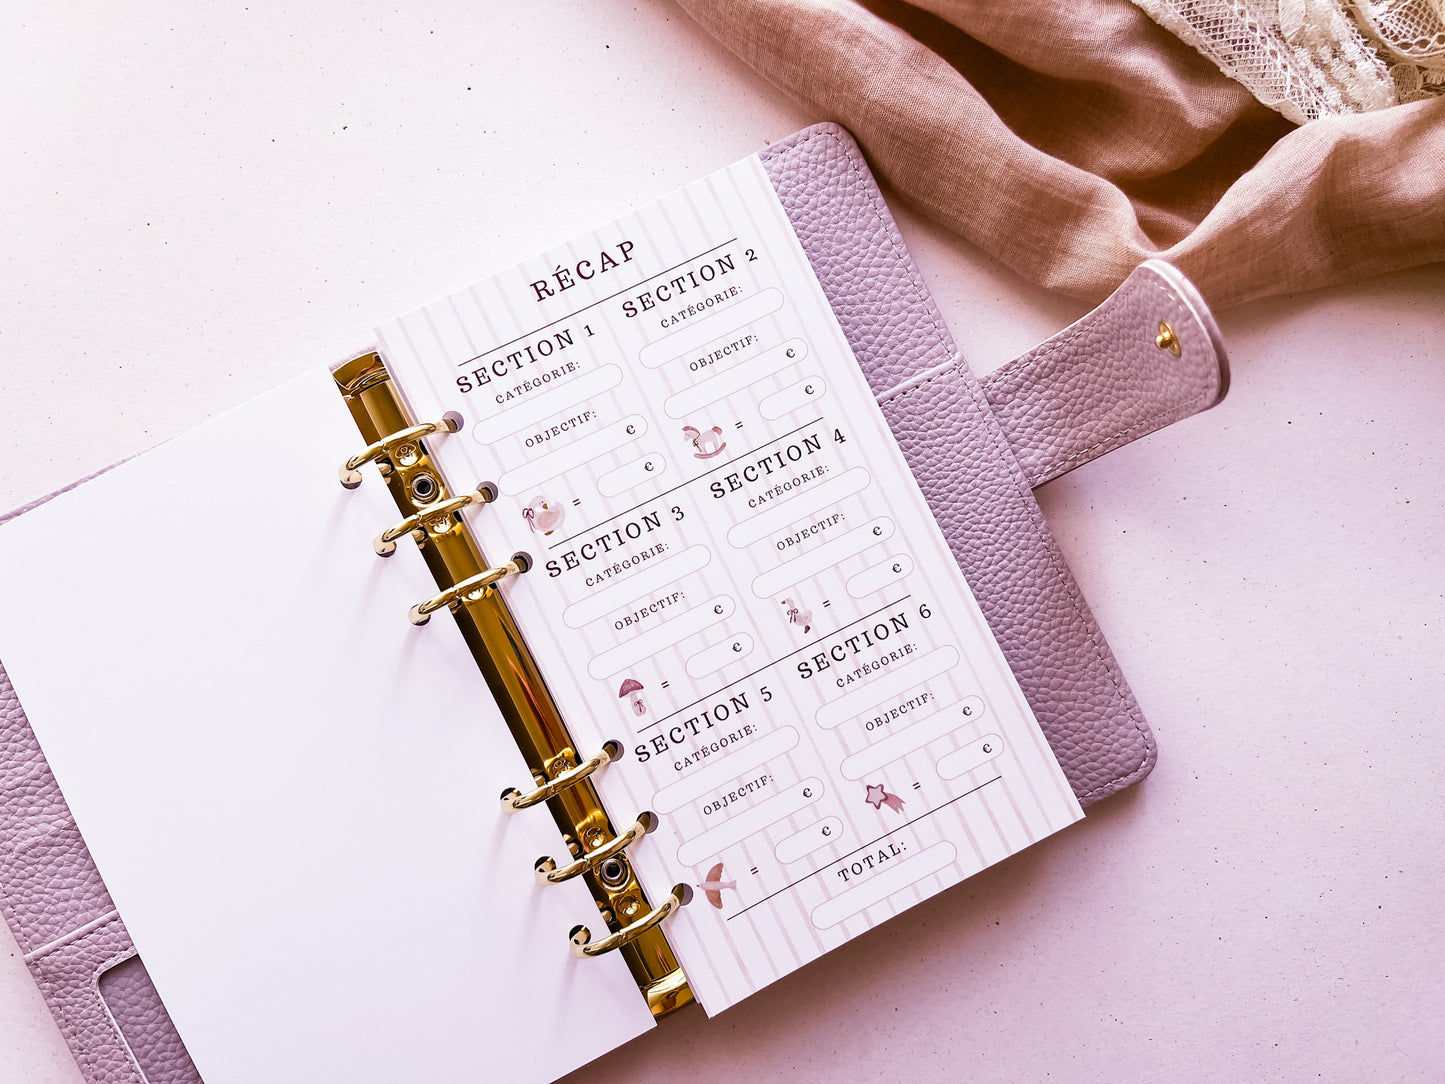 RÉCAP
SECTION 1
CATÉGORIE:
OBJECTIF:
€
€
=
SECTION 2
CATÉGORIE:
OBJECTIF:
€
€
=
SECTION 3
CATÉGORIE:
OBJECTIF:
€
€
=
SECTION 4
CATÉGORIE:
OBJECTIF:
€
€
=
SECTION 5
CATÉGORIE:
OBJECTIF:
€
€
=
SECTION 6
CATÉGORIE:
OBJECTIF:
€
€
=
TOTAL: